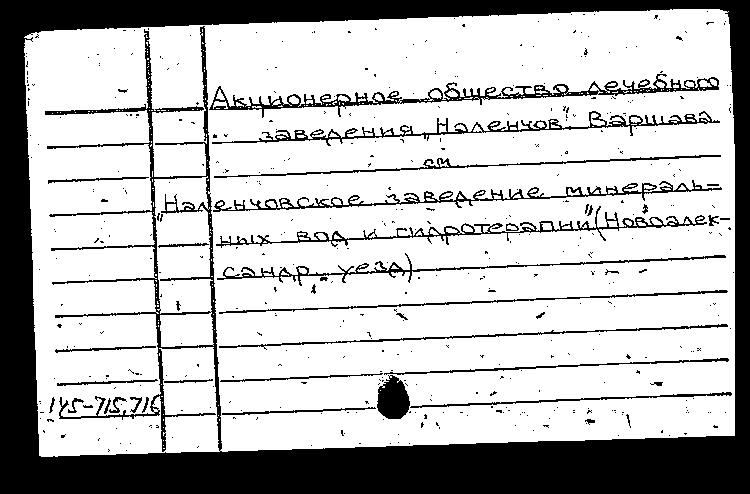 Акционерное общество лечебного
заведения „Наленчов". Варшава
см
„Наленчовское заведение минераль=
ных вод и гидротерапии" (Новоалек-
сандр. уезд).
145-715,716